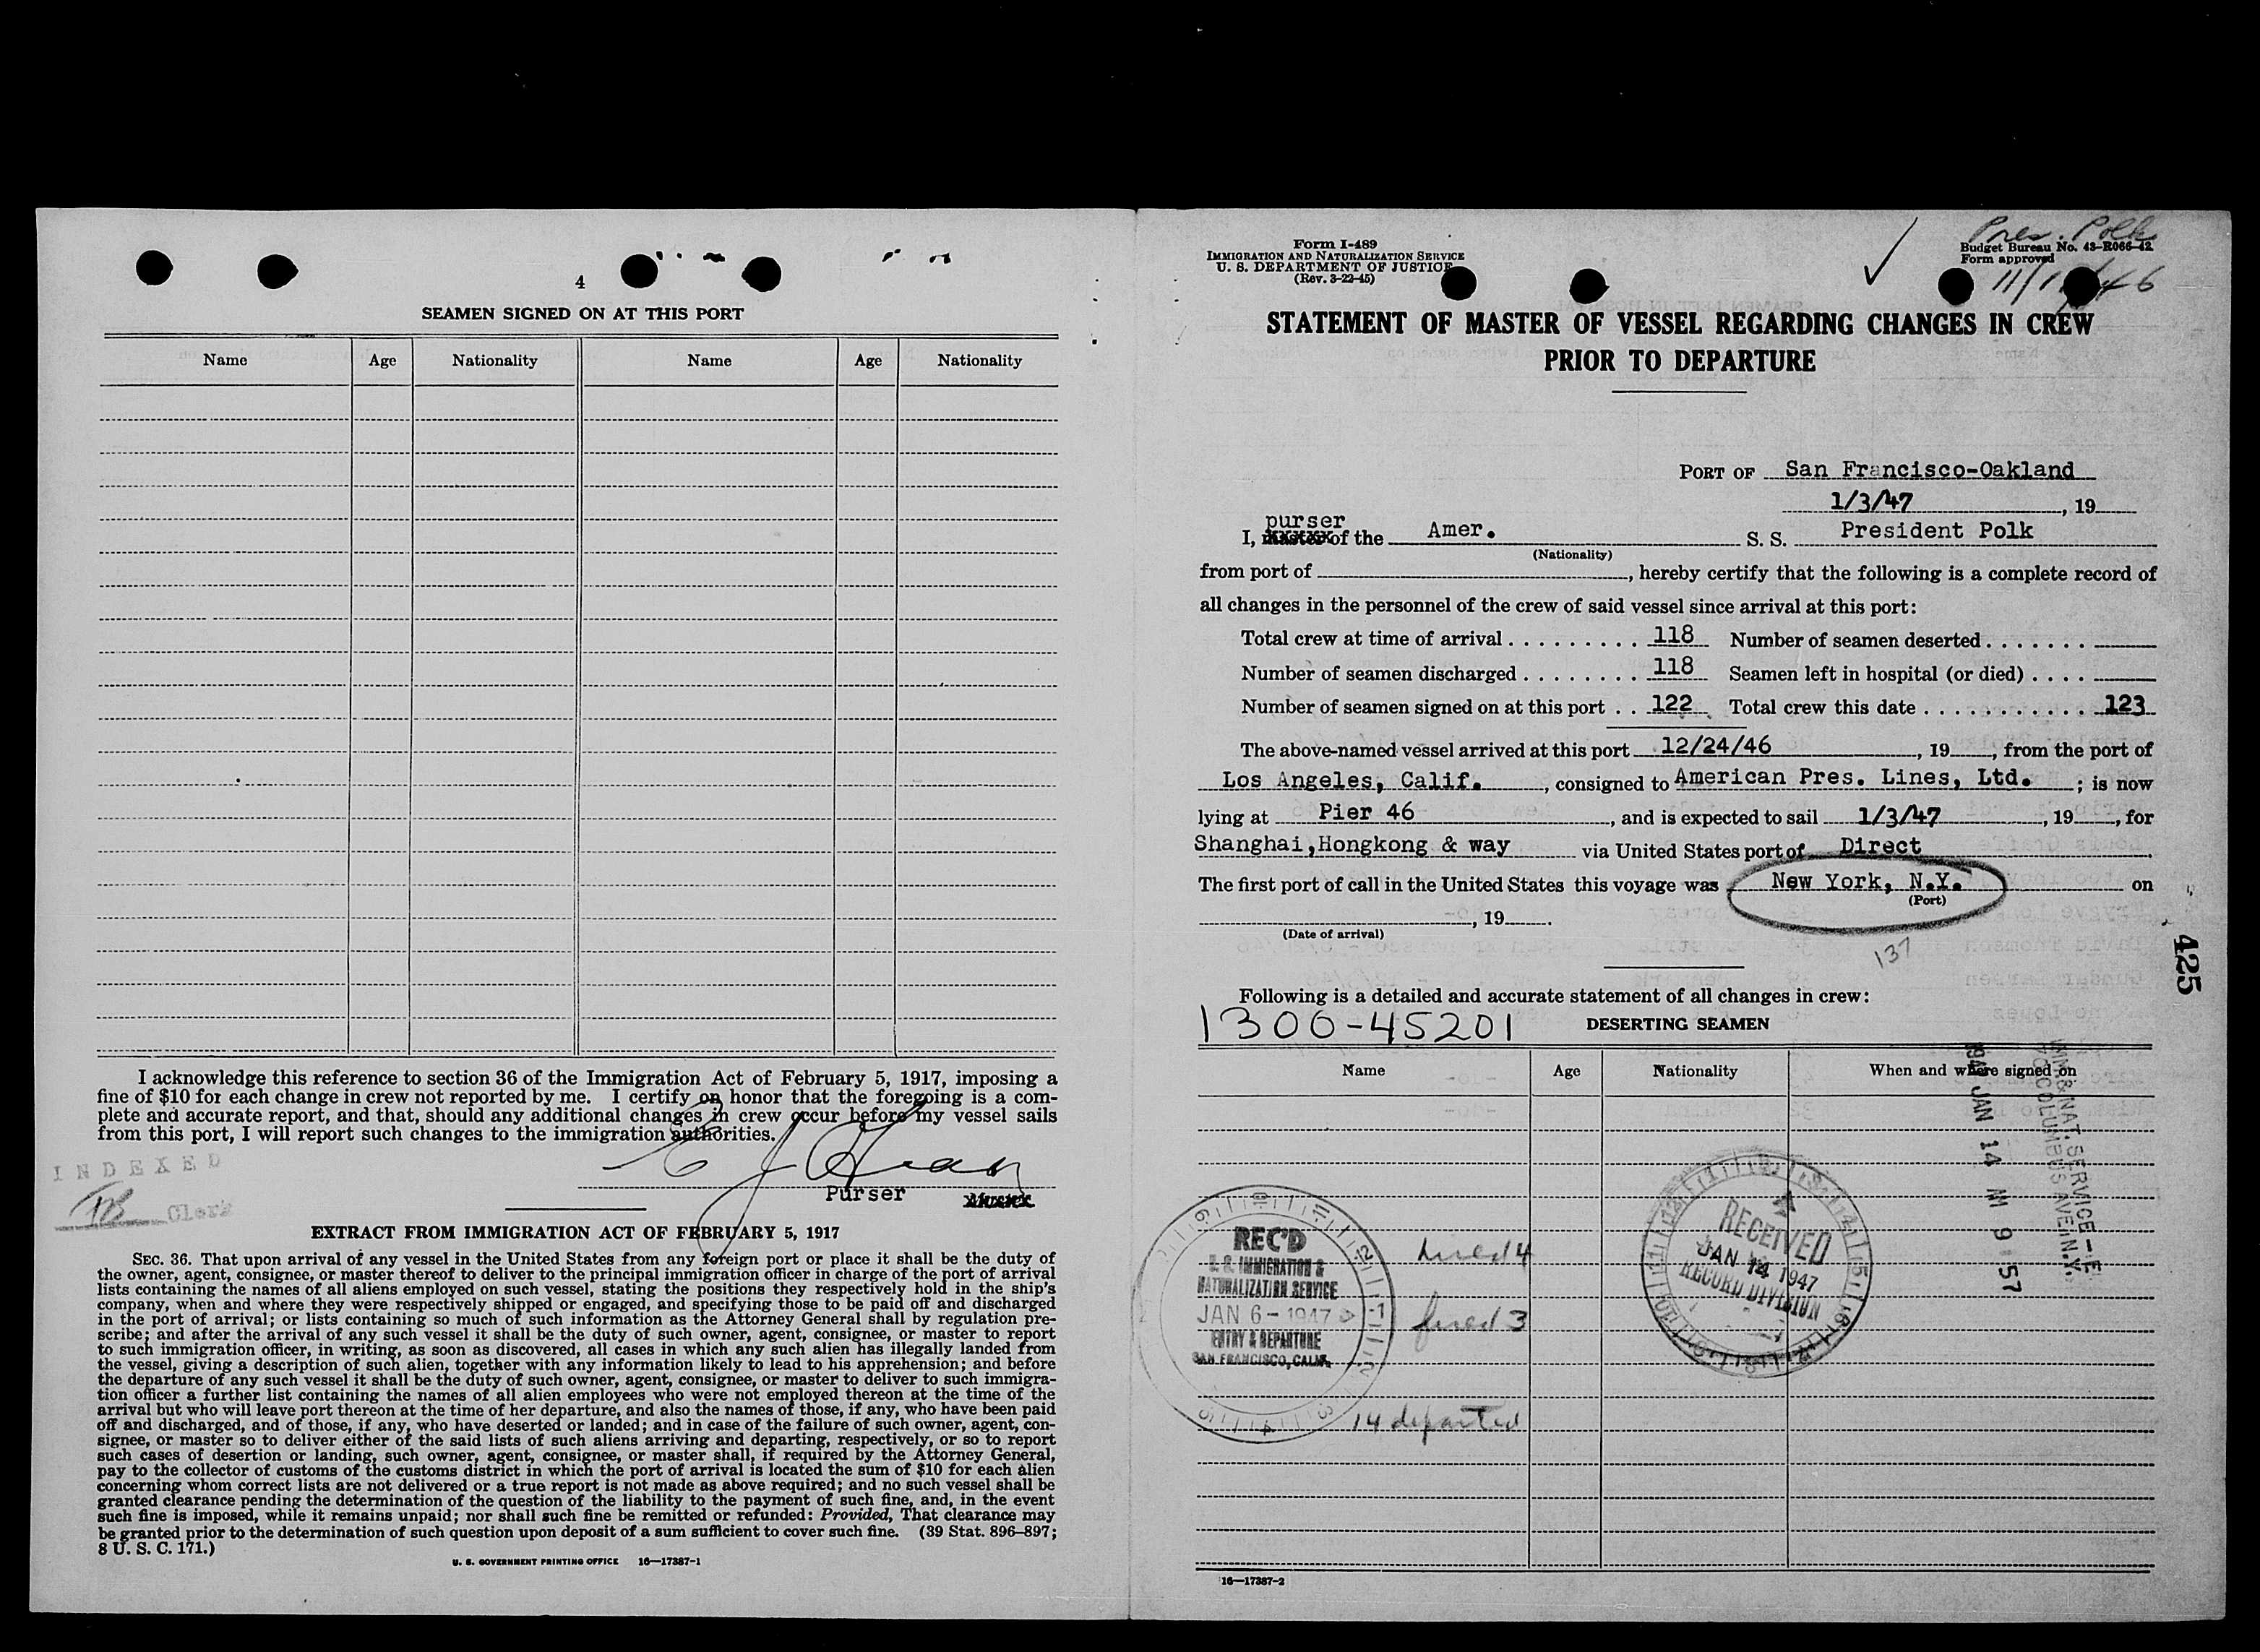 4
SEAMEN SIGNED ON AT THIS PORT
Name Age Nationality Name Age Nationality
I acknowledge this reference to section 36 of the Immigration Act of February 5, 1917, imposing a
fine of $10 for each change in crew not reported by me. I certify on honor that the foregoing is a com-
plete and accurate report, and that, should any additional changes in crew occur before my vessel sails
from this port, I will report such changes to the immigration authorities.
INDEXED
Clerk
E J
Purser Master
EXTRACT FROM IMMIGRATION ACT OF FEBRUARY 5, 1917
SEC. 36. That upon arrival of any vessel in the United States from any foreign port or place it shall be the duty of
the owner, agent, consignee, or master thereof to deliver to the principal immigration officer in charge of the port of arrival
lists containing the names of all aliens employed on such vessel, stating the positions they respectively hold in the ship's
company, when and where they were respectively shipped or engaged, and specifying those to be paid off and discharged
in the port of arrival; or lists containing so much of such information as the Attorney General shall by regulation pre-
scribe; and after the arrival of any such vessel it shall be the duty of such owner, agent, consignee, or master to report
to such immigration officer, in writing, as soon as discovered, all cases in which any such alien has illegally landed from
the vessel, giving a description of such alien, together with any information likely to lead to his apprehension; and before
the departure of any such vessel it shall be the duty of such owner, agent, consignee, or master to deliver to such immigra-
tion officer a further list containing the names of all alien employees who were not employed thereon at the time of the
arrival but who will leave port thereon at the time of her departure, and also the names of those, if any, who have been paid
off and discharged, and of those, if any, who have deserted or landed; and in case of the failure of such owner, agent, con-
signee, or master so to deliver either of the said lists of such aliens arriving and departing, respectively, or so to report
such cases of desertion or landing, such owner, agent, consignee, or master shall, if required by the Attorney General,
pay to the collector of customs of the customs district in which the port of arrival is located the sum of $10 for each alien
concerning whom correct lists are not delivered or a true report is not made as above required; and no such vessel shall be
granted clearance pending the determination of the question of the liability to the payment of such fine, and, in the event
such fine is imposed, while it remains unpaid; nor shall such fine be remitted or refunded: Provided, That clearance may
be granted prior to the determination of such question upon deposit of a sum sufficient to cover such fine. (39 Stat. 896–897;
8 U. S. C. 171.)
U. S. GOVERNMENT PRINTING OFFICE 16—17387-1
Form I-489
IMMIGRATION AND NATURALIZATION SERVICE
U. S. DEPARTMENT OF JUSTICE
(Rev. 3-22-45)
Pres. Polk
Budget Bureau No. 43-R066-42
Form approved
STATEMENT OF MASTER OF VESSEL REGARDING CHANGES IN CREW
PRIOR TO DEPARTURE
PORT OF San Francisco-Oakland
1/3/47, 19
purser
I, master of the Amer. S. S. President Polk
(Nationality)
from port of , hereby certify that the following is a complete record of
all changes in the personnel of the crew of said vessel since arrival at this port:
Total crew at time of arrival 118 Number of seamen deserted
Number of seamen discharged 118 Seamen left in hospital (or died)
Number of seamen signed on at this port 122 Total crew this date 123
The above-named vessel arrived at this port 12/24/46, 19, from the port of
Los Angeles, Calif., consigned to American Pres. Lines, Ltd. ; is now
lying at Pier 46, and is expected to sail 1/3/47, 19, for
Shanghai,Hongkong & way via United States port of Direct
The first port of call in the United States this voyage was New York, N.Y. on
(Port)
, 19.
(Date of arrival)
137
425
Following is a detailed and accurate statement of all changes in crew:
1300-45201 DESERTING SEAMEN
Name Age Nationality When and where signed on
IMM & NAT. SERVICE
COLUMBUS AVE. N.Y.
JAN 14 AM 9 57
REC'D
U. S. IMMIGRATION &
NATURALIZATION SERVICE
JAN 6 - 1947
ENTRY & DEPARTURE
SAN FRANCISCO, CALIF.
RECEIVED
JAN 14 1947
RECORD DIVISION
14 departed
16—17387-2